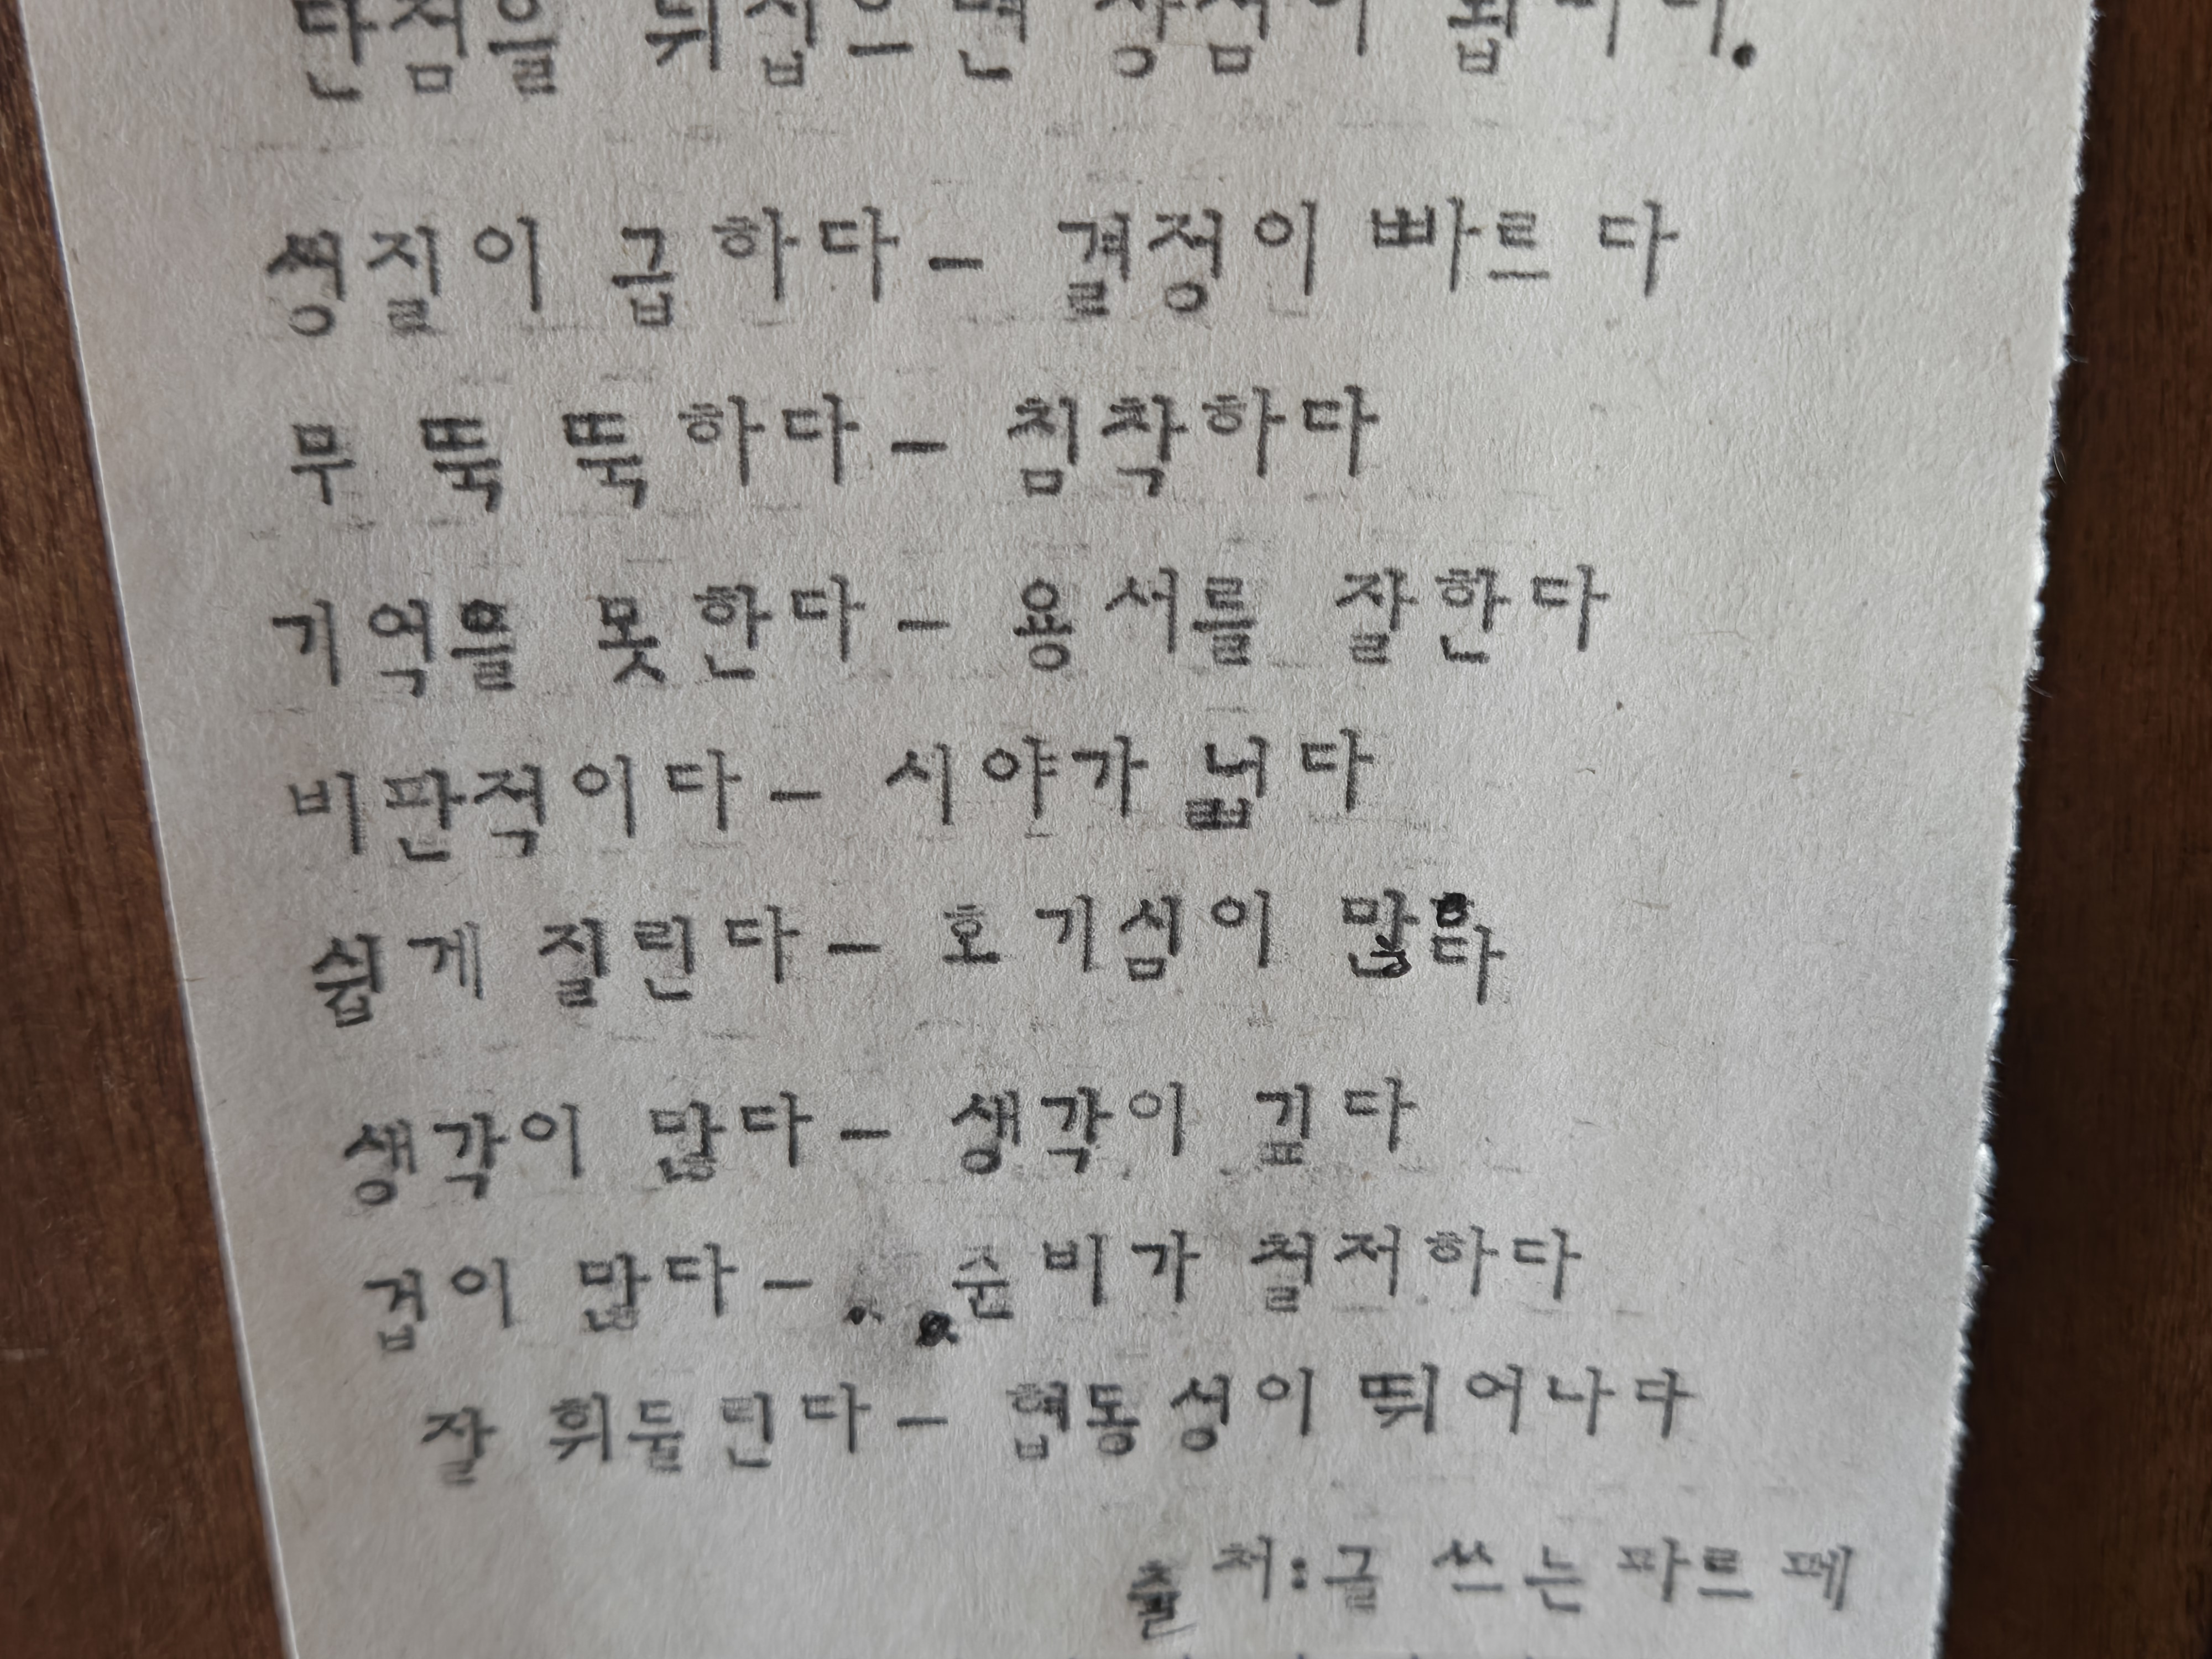 단점을 뒤집으면 장점이 됩니다.
썽질이 급하다 - 결정이 빠르다
무뚝뚝하다 - 침착하다
기억을 못한다 - 용서를 잘한다
비판적이다 - 시야가 넓다
쉽게 질린다 - 호기심이 많다
생각이 많다 - 생각이 깊다
겁이 많다 - 준비가 철저하다
잘 휘둘린다 - 협동성이 뛰어나다
출처:글 쓰는 파르페